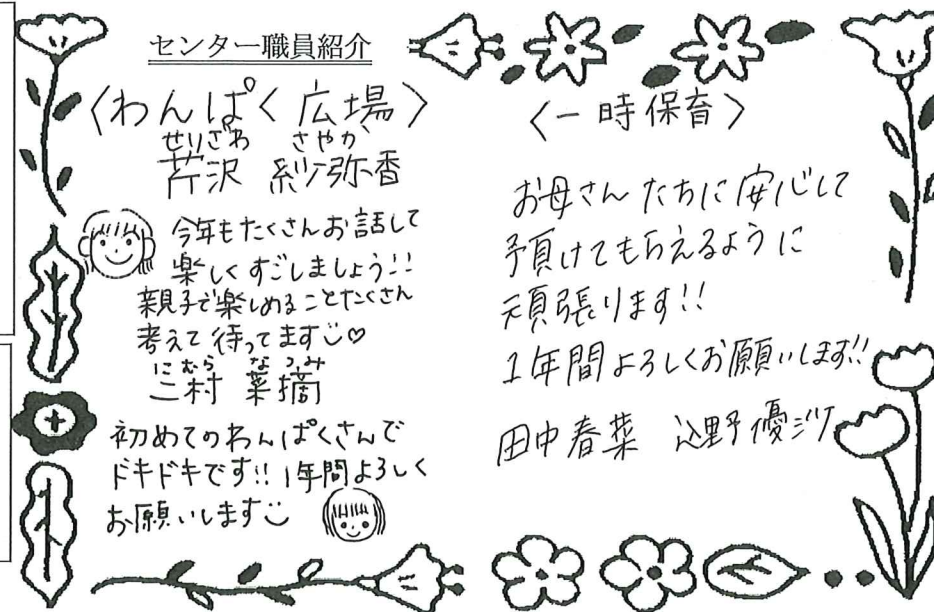 センター職員紹介
〈わんぱく広場〉
せりざわ さやか
芹沢 紗弥香
今年もたくさんお話して
楽しくすごしましょう!!
親子で楽しめることたくさん
考えて待ってます♡
にむら なつみ
二村 菜摘
初めてのわんぱくさんで
ドキドキです!! 1年間よろしく
お願いします
〈一時保育〉
お母さんたちに安心して
預けてもらえるように
頑張ります!!
1年間よろしくお願いします!!
田中春菜